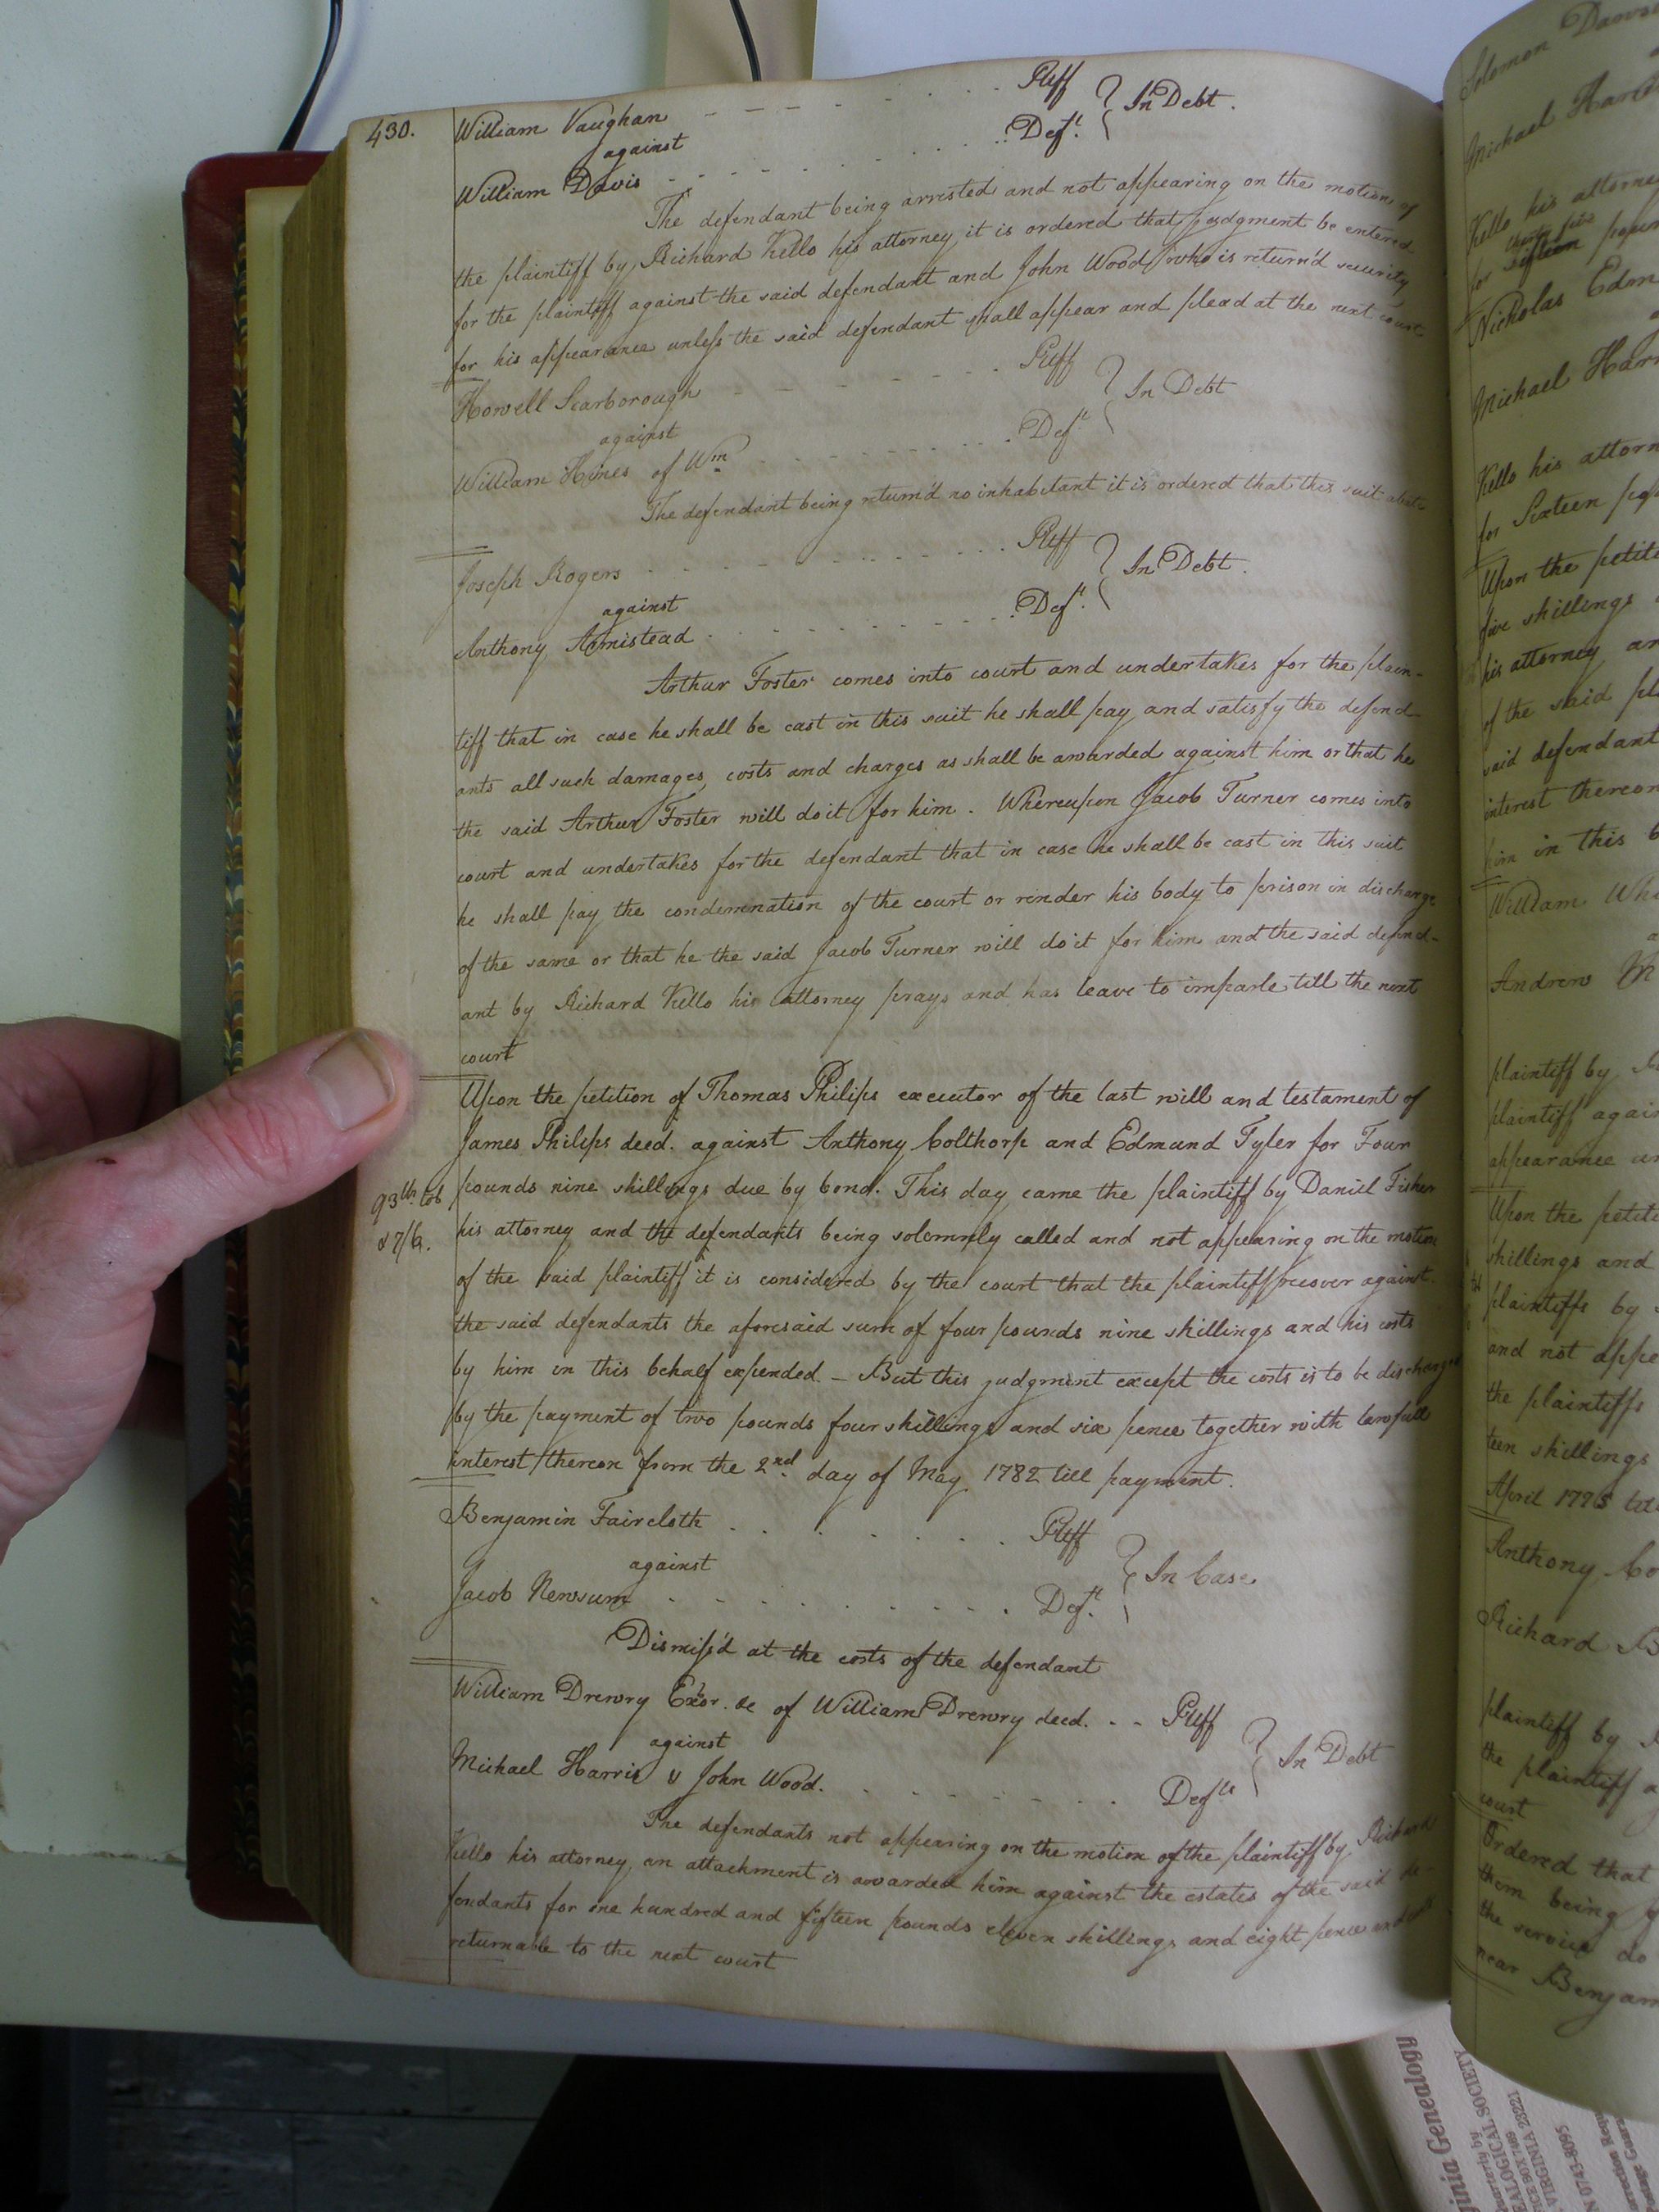 430.
William Vaughan - - - . . . . Pltff
against } In Debt.
William Davis - - - - . . . . Deft.
The defendant being arrested and not appearing on the motion of
the plaintiff by Richard Kello his attorney it is ordered that judgment be entered
for the plaintiff against the said defendant and John Wood who is return'd security
for his appearance unless the said defendant shall appear and plead at the next court
Howell Scarborough - - - - - . Pltff
against } In Debt
William Hines of Wm. . . . . . . Deft.
The defendant being return'd no inhabitant it is ordered that this suit abate
Joseph Rogers . . . . . . . . Pltff
against } In Debt.
Anthony Armistead . . . . . . . . Deft.
Arthur Foster comes into court and undertakes for the plain-
tiff that in case he shall be cast in this suit he shall pay and satisfy the defend
ants all such damages, costs and charges as shall be awarded against him or that he
the said Arthur Foster will do it for him. Whereupon Jacob Turner comes into
court and undertakes for the defendant that in case he shall be cast in this suit
he shall pay the condemnation of the court or render his body to prison in discharge
of the same or that he the said Jacob Turner will do it for him and the said defend-
ant by Richard Kello his attorney prays and has leave to imparle till the next
court
Upon the petition of Thomas Philips executor of the last will and testament of
James Philips deed. against Anthony Colthorp and Edmund Tyler for Four
93th tob
& 7/6.
pounds nine shillings due by bond. This day came the plaintiff by Daniel Fisher
his attorney and the defendants being solemnly called and not appearing on the motion
of the said plaintiff it is considered by the court that the plaintiff recover against
the said defendants the aforesaid sum of four pounds nine shillings and his costs
by him in this behalf expended. - But this judgment except the costs is to be discharged
by the payment of two pounds four shillings and six pence together with lawfull
interest thereon from the 2nd. day of May 1782 till payment.
Benjamin Faircloth . . . . . . . Pltff
against } In Case
Jacob Newsum . . . . . . . . Deft.
Dismiss'd at the costs of the defendant
William Drewry Exor. &c of William Drewry deed. . - - Pltff
against } In Debt
Michael Harris & John Wood. . . . . . . . Defts
The defendants not appearing on the motion of the plaintiff by Richard
Kello his attorney an attachment is awarded him against the estates of the said de
fendants for one hundred and fifteen pounds eleven shillings and eight pence and costs
returnable to the next court
Solomon
Michael
Kello his attorney
thirty five
for
Nicholas Edm
Michael Harr
Kello his attorn
for Sixteen
Upon the petit
five shillings
his attorney an
of the said pl
said defendant
interest thereon
him in this b
William Whi
Andrew M
plaintiff by
plaintiff again
appearance un
Upon the petiti
shillings and
plaintiffs by
and not appe
the plaintiffs
teen shillings
April 1775
Anthony Co
Richard B
plaintiff by
the plaintiff a
court
Ordered that
them being
the service do
near Benjam
ginia Genealogy
uarterly by
EALOGICAL SOCIETY
ICE BOX 7469
VIRGINIA 23221
0743-8095